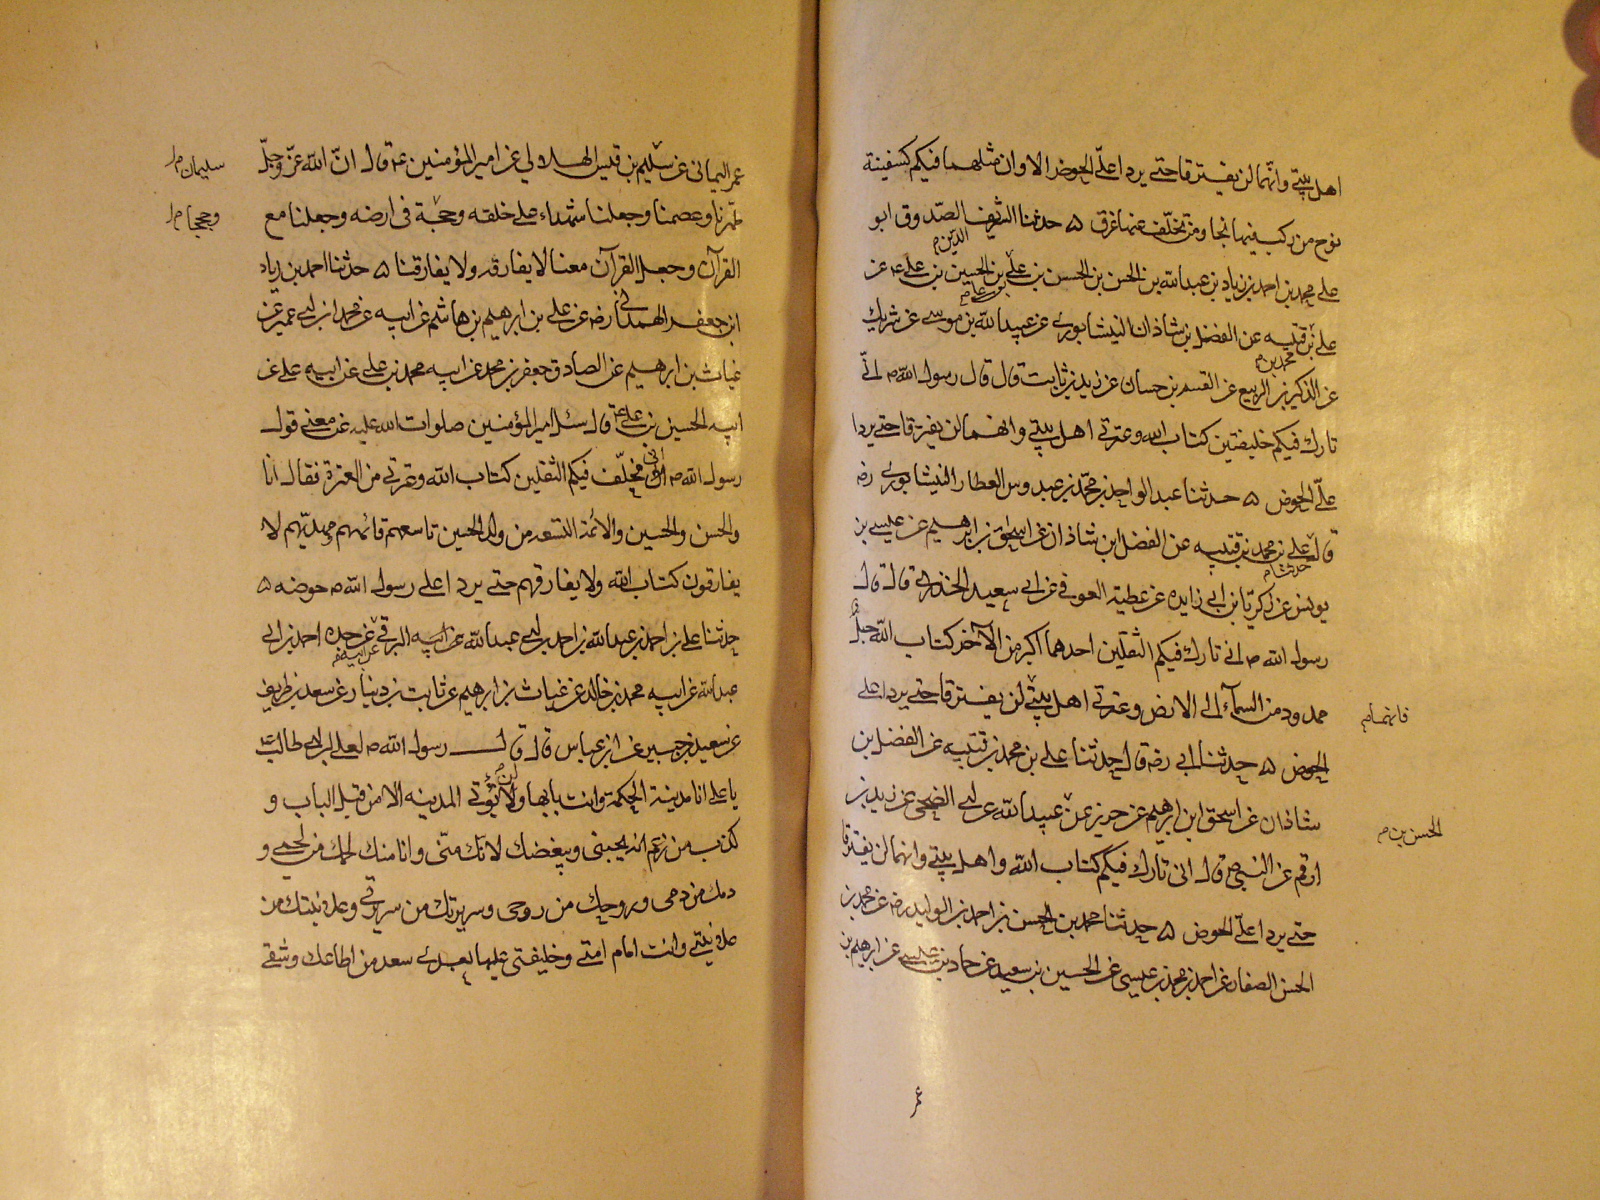 اهل بيتي وانهما لن يفترقا حتى يردا علّى الحوض الا وان مثلهما فيكم كسفينة
نوح من ركب فيها نجا ومن تخلّف عنها غرق ۵ حدثنا الشريف الدين م الصدوق ابو
على محمد بن احمد بن زياد بن عبد الله بن الحسن بن الحسن بن علّى بن الحسين بن على ع عن
على بن قتيبه عن الفضل بن شاذان النيشابورى عن عبيد الله بن موسى عن شريك
محمد بن م
عن الذكين بن الربيع عن القسم بن حسان عن زيد بن ثابت قال قال رسول الله ص انّى
تارك فيكم خليفتين كتاب الله وعترتى اهل بيتى وانهما لن يفترقا حتى يردا
علّى الحوض ۵ حدثنا عبد الواحد بن محمّد بن عبدوس العطار النيشابورى رضه
قال على بن محمد بن قتيبه عن الفضل ابن شاذان عن اسحق بن ابرهيم عن عيسى بن
حدثنا م
يونس عن زكريّا بن ابى زايده عن عطية العوفى عن ابى سعيد الخدرى قال قال
رسول الله ص انى تارك فيكم الثقلين احدهما اكبر من الآخر كتاب الله حبل
ممدود من السمآء الى الارض وعترتى اهل بيتى لن يفترقا حتى يردا على
فانهما م
الحوض ۵ حدثنا ابى رضه قال حدثنا على بن محمد بن قتيبه عن الفضل بن
شاذان عن اسحق ابن ابرهيم عن جرير عن عبيد الله عن ابى الضحى عن زيد بن
الحسن بن م
ارقم عن النبى ص قال انى تارك فيكم كتاب الله واهل بيتى وانهما لن يفترقا
حتى يردا علّى الحوض ۵ حدثنا محمد بن الحسن بن احمد بن الوليد رضه عن محمد بن
الحسن الصفار عن احمد بن محمد بن عيسى عن الحسين بن سعيد عن حماد بن عيسى عن ابرهيم بن
عمر
عمر اليمانى عن سليم بن قيس الهلالي عن امير المؤمنين ع قال انّ الله عزّ وجلّ
سليمان م
طهّرنا وعصمنا وجعلنا شهداء على خلقه وحجّة فى ارضه وجعلنا مع
وحججا م
القرآن وجعل القرآن معنا لا يفارقه ولا يفارقنا ۵ حدثنا احمد بن زياد
ابن جعفر الهمدانى رضه عن على بن ابرهيم بن هاشم عن ابيه عن محمد ابن ابى عمير عن
غياث بن ابرهيم عن الصادق جعفر بن محمد عن ابيه محمد بن على عن ابيه على عن
ابيه الحسين بن على ع قال سئل امير المؤمنين صلوات الله عليه عن معنى قول
رسول الله ص انى مخلّف فيكم الثقلين كتاب الله وعترتى من العترة فقال انا
والحسن والحسين والائمة التسعه من ولد الحسين تاسعهم قائمهم ومهديّهم لا
يفارقون كتاب الله ولا يفارقهم حتى يردا على رسول الله ص حوضه ۵
حدثنا على بن احمد بن عبد الله بن احمد بن ابى عبد الله عن ابيه البرقى عن جده احمد بن ابى
عن ابيه
عبد الله عن ابيه محمد بن خالد عن غياث بن ابرهيم عن ثابت بن دينار عن سعد بن طريف
عن سعيد بن جبير عن ابن عباس قال قال رسول الله ص لعلى بن ابى طالب ع
يا على انا مدينة الحكمة وانت بابها ولن تؤتى المدينه الا من قبل الباب و
كذب من زعم انه يحبنى ويبغضك لانك منّى وانا منك لحمك من لحمى و
دمك من دمى وروحك من روحى وسريرتك من سريرتى وعلانيتك من
علانيتى وانت امام امتى وخليفتى عليها بعدى سعد من اطاعك وشقى